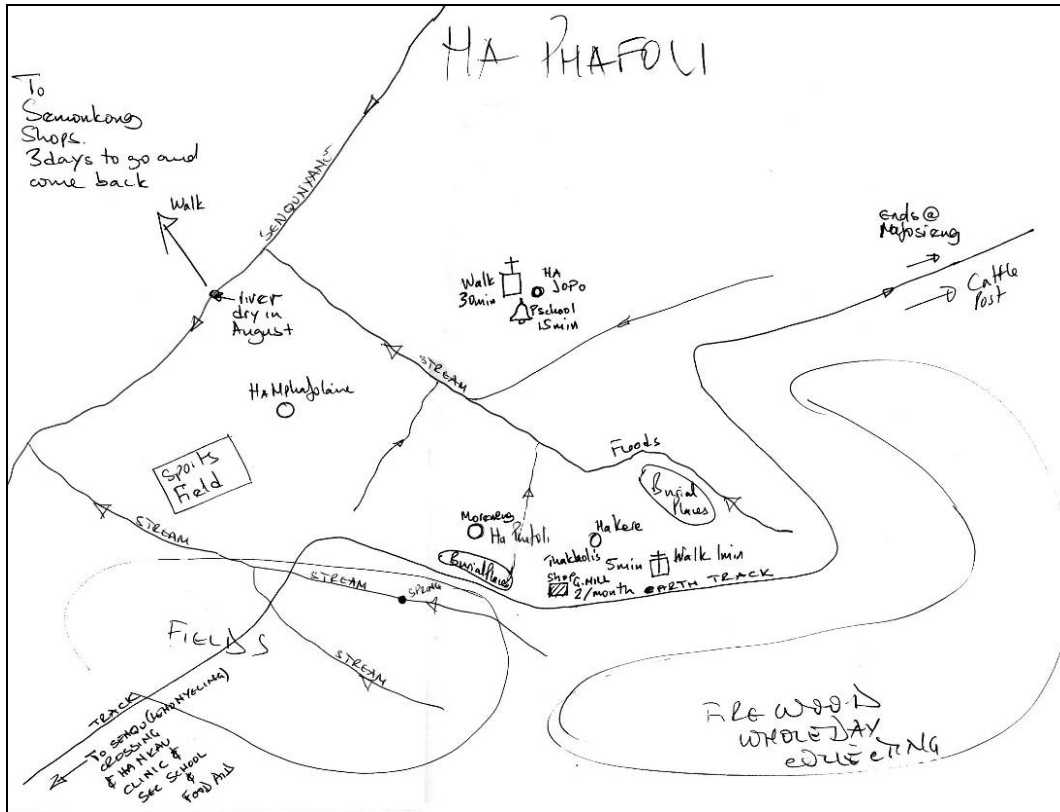 HA PHAFOLI
To
Semonkong
Shops.
3days to go and
come back
Walk
SENQUNYANE
river
dry in
August
Walk
30min
HA
JOPO
Pschool
15min
Ends @
Cattle
Post
STREAM
HA Mphafolane
Sports
Field
Floods
Burial
Places
Moreneng
Ha Phafoli
Ha Kere
Burial Places
Thakholis
Shop
G.MILL
2/month
5min
Walk 1min
EARTH TRACK
STREAM
STREAM
SPRING
FIELDS
STREAM
TRACK
TO SENQU (LEHONYELING)
CROSSING
& HA NKAU
CLINIC &
SEC SCHOOL
&
FOOD AID
FIREWOOD
WHOLE DAY
COLLECTING